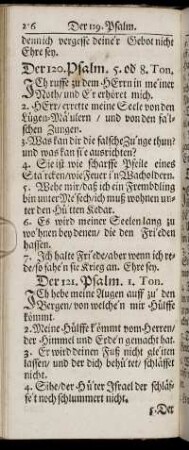 216 Der 119. Psalm.
dennich vergesse deine'r Gebot nicht
Ehre sey.
Der 120. Psalm. 5. od 8. Ton.
Jch ruffe zu dem HErrn in me'iner
Noth/ und Er erhöret mich.
2. HErr/ errette meine Seele von den
Lügen-Mä'ulern / und von den fal-
schen Zungen.
3. Was kan dir die falsche Zu'nge thun?
und was kan sie ausrichten?
4. Sie ist wie scharffe Pfeile eines
Sta'rcken/ wie Feuer i'n Wacholdern.
5. Wehe mir/ daß ich ein Frembdling
bin unter Me'sech/ ich muß wohnen un-
ter den Hü'tten Kedar.
6. Es wird meiner Seelen lang zu
wo'hnen bey denen/ die den Fri'eden
hassen.
7. Jch halte Fri'ede/ aber wenn ich re-
de/ so fahe'n sie Krieg an. Ehre sey.
Der 121. Psalm. 1. Ton.
Jch hebe meine Augen auff zu' den
Bergen/ von welche'n mir Hülffe
kömmt.
2. Meine Hülffe kömmt vom Herren/
der Himmel und Erde'n gemacht hat.
3. Er wird deinen Fuß nicht gle'iten
lassen/ und der dich behü'tet/ schläffet
nicht.
4. Sihe/ der Hü'ter Israel der schläf-
fe't noch schlummert nicht.
5. Der